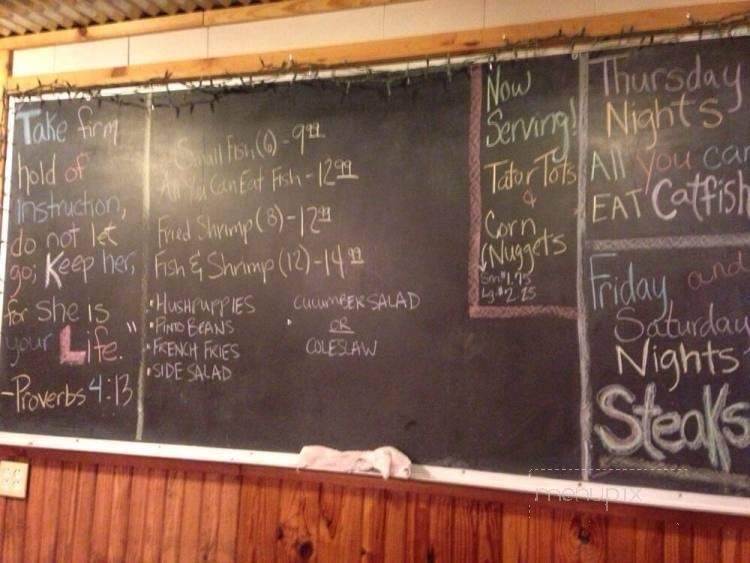 Take firm
hold of
instruction,
do not let
go; Keep her,
for she is
your Life."
-Proverbs 4:13
Small Fish (6) - 9 99
All You Can Eat Fish - 12 99
Fried Shrimp (8) - 12 99
Fish & Shrimp (12) - 14 99
• HUSHPUPPIES
• PINTO BEANS
• FRENCH FRIES
• SIDE SALAD
CUCUMBER SALAD
OR
COLESLAW
Now
Serving!
Tatur Tots
&
Corn
Nuggets
Sm $1.75
Lg. $2.25
Thursday
Nights
All You can
EAT Catfish
Friday and
Saturday
Nights
Steaks
menupix